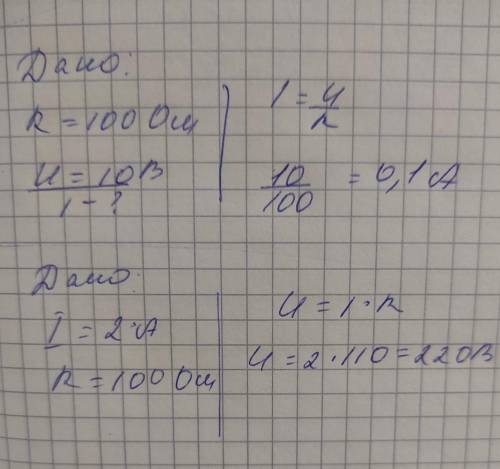 Дано:
R = 100 Ом
U = 10 В
I - ?
I = U/R
10/100 = 0,1 А
Дано:
I = 2 А
R = 100 Ом
U = I · R
U = 2 · 110 = 220 В